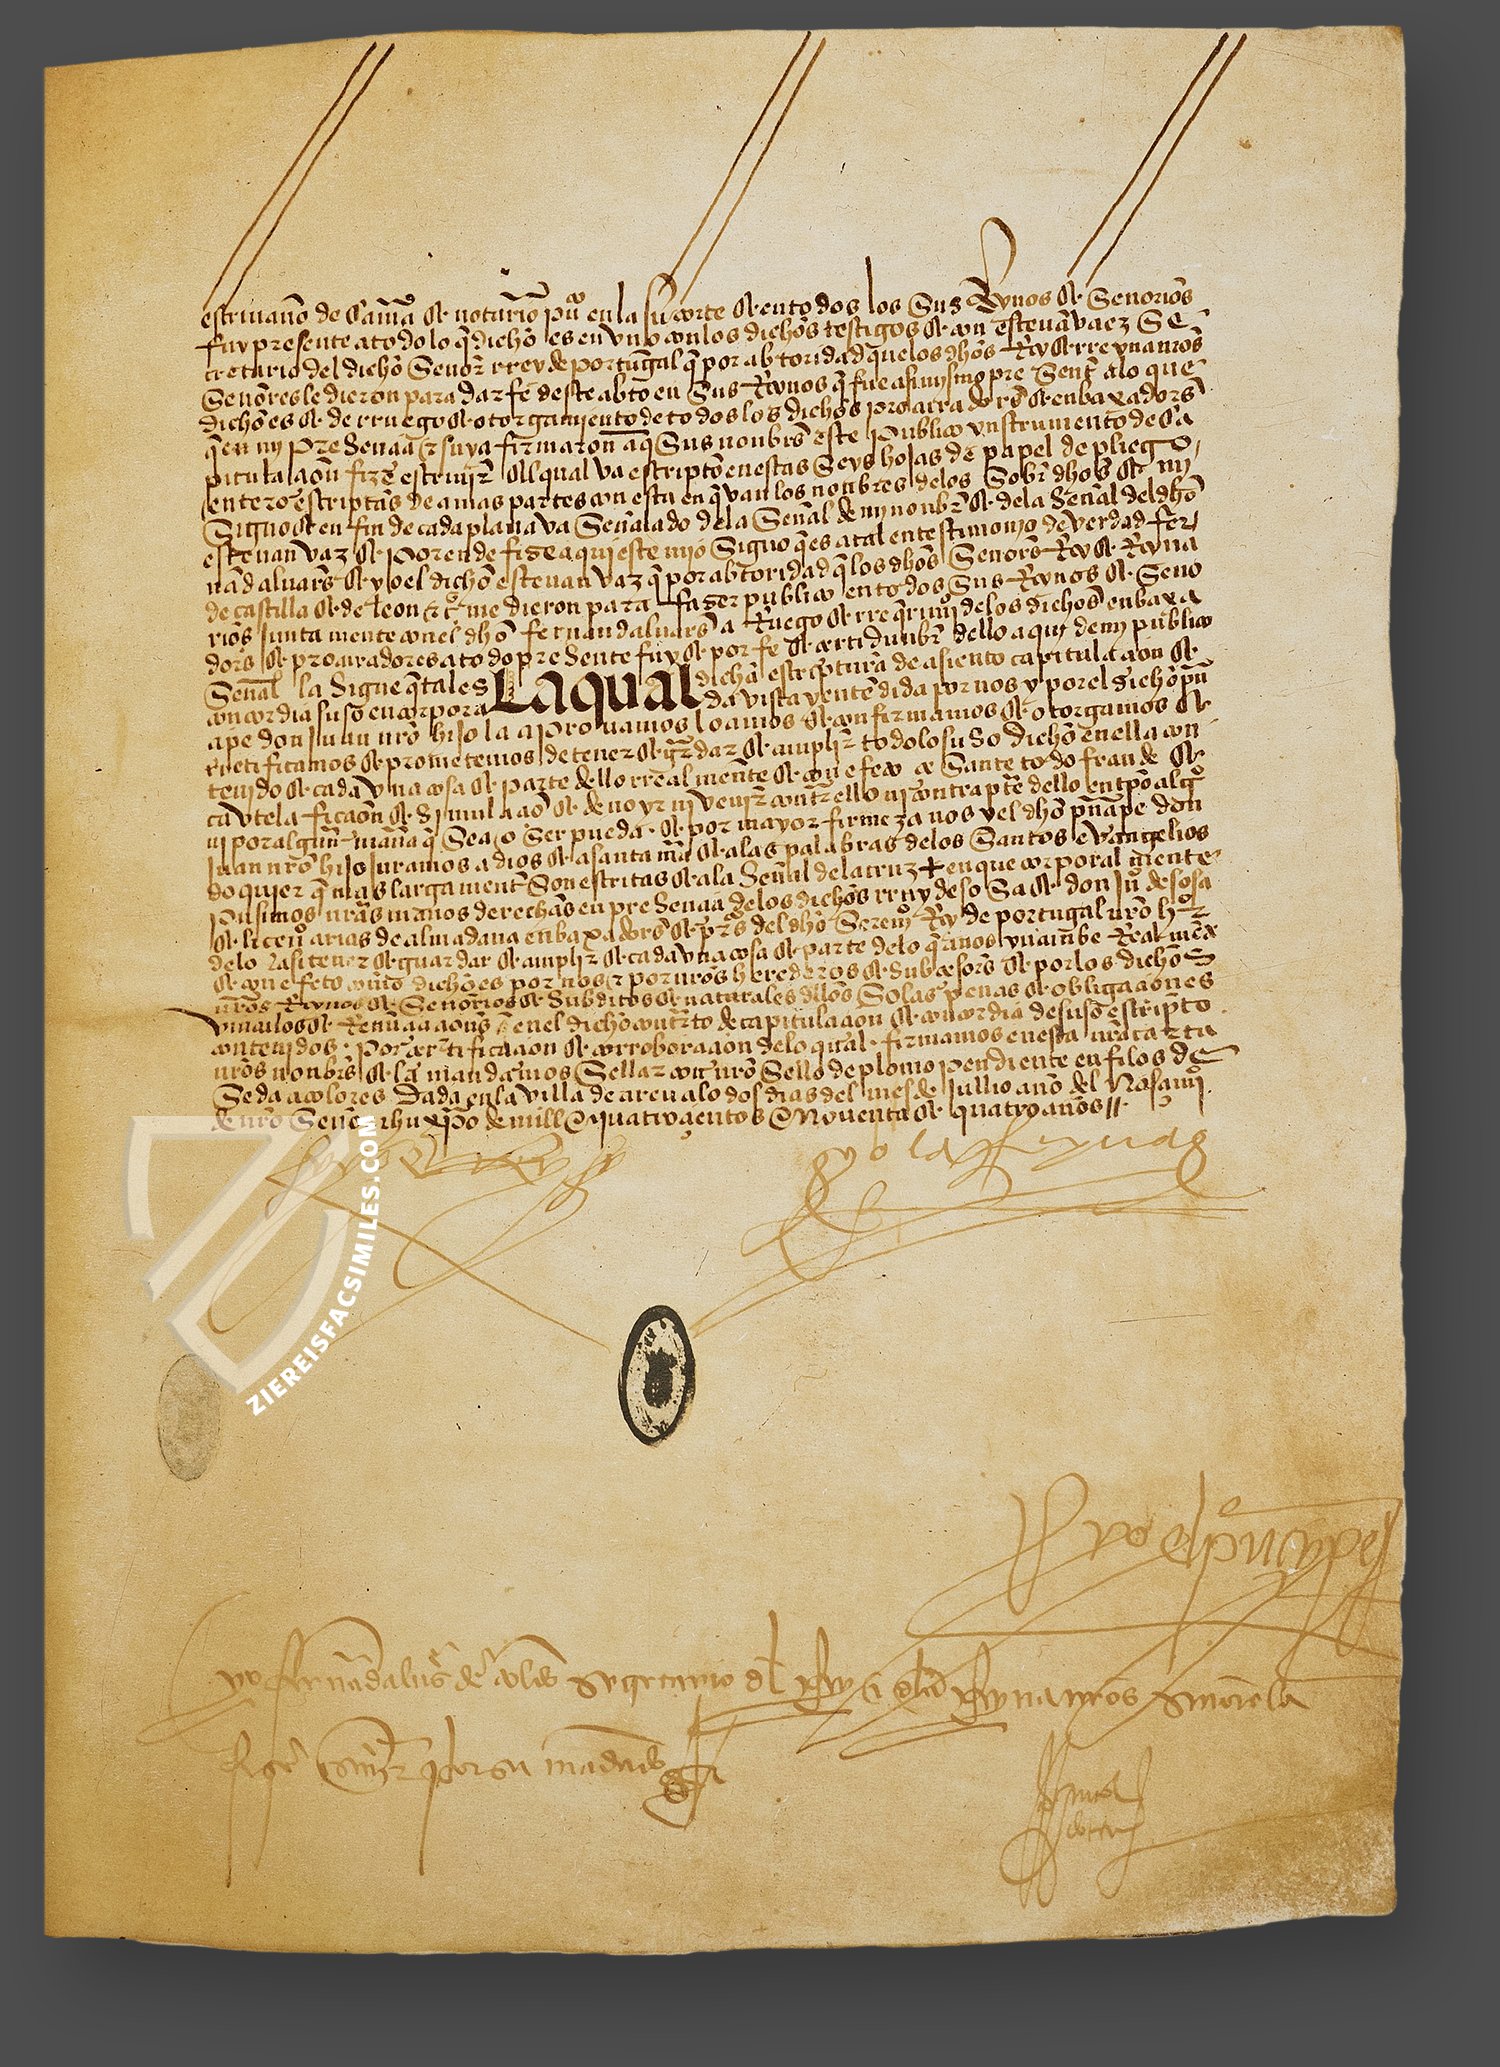 escriuano de camara & notario pu^co en la su corte & en todos los sus Reynos & Senorios
fuy presente a todo lo q̄ dicho es en vno con los dichos testigos & con esteuā vaez Se
cretario del dicho Señor rrey de portugal q̄ por abtoridad que los dhos Rey & rreyna nr̄os
Señores le dieron para dar fe deste abto en sus Reynos q̄ fue asimysmo presente a lo que
dicho es & de rruego & otorgamiento de todos los dichos procuradores & enbaxadores
q̄ en my presencia & suya firmaron aq̄ sus nonbres este publico ynstrumento de ca
pitulaçion fize escriuir El qual va escripto en estas seys hojas de papel de pliego
entero escriptas de amas partes con esta en q̄ van los nonbres de los sobr̄dhos & my
Signo & en fin de cada plana va señalado de la señal de my nonbre & de la señal del dho
esteuan vaz & por ende fize aqui este mio Signo q̄ es a tal en testimonio de verdad fer
nād aluares & yo el dicho esteuan vaz q̄ por abtoridad q̄ los dhos Señores Rey & Reyna
de castilla & de leon &c me dieron para fazer publico en todos sus Reynos & Seño
rios Junta mente con el dho fernand aluares a Ruego & rreq̄rimi^o de los dichos enbaxa
dores & procuradores a todo presente fuy & por fe & certidunbre dello aqui de my publico
Señal la Signe q̄ tal es Laqual dicha escriptura de asiento capitulaçion &
concordia suso encorpora da vista y entēdida por nos y por el dicho prin
çipe don Juan nr̄o hijo la aprouamos loamos & confirmamos & otorgamos &
rretificamos & prometemos de tener & gr̄dar & cumplir todo lo suso dicho en ella con
tenido & cada vna cosa & parte dello rrealmente & con efecto çesante todo fraude &
cautela ficçion & simulaçion & de no yr ni venir contra ello ni contra parte dello en tpo algu^o
ni por alguna manera q̄ sea o ser pueda & por mayor firmeza nos y el dho prinçipe don
Juan nr̄o hijo Juramos a dios & a santa ma & a las palabras de los santos euangelios
do quier q̄ mas largamente son escritas & a la señal de la cruz ✝ en que corporal mente
pusimos nr̄as manos derechas en presençia de los dichos rruy de sosa & don Ju^o de sosa
& liçen^do arias de almadana enbaxadores & pr̄es del dho Serem^o Rey de portugal nr̄o hr̄^o
de lo asi tener & guardar & cumplir & cada vna cosa & parte de lo q̄ a nos yncunbe Realmēte
& con efeto como dicho es por nos & por nr̄os herederos & subçesores & por los dichos
nr̄os Reynos & Señorios & subditos & naturales dellos so las penas & obligaçiones
vinculos & Renūçiaçiones en el dicho contrato de capitulaçion & concordia de suso escripto
contenidos Por çertificaçion & corroboraçion de lo qual firmamos en esta nr̄a carta
nr̄os nonbres & la mandamos sellar con nr̄o sello de plomo pendiente en filos de
seda a colores Dada en la villa de areualo dos dias del mes de Jullio año del Nasçimi^o
de nr̄o Señor ihu xpo de mill & quatroçientos & Nouenta & quatro años //
yo el rey yo la Reyna
yo el prinçipe
yo fernād aluares de toledo secretario del Rey & de la Reyna nr̄os señores la
fize escreuir por su mandado
ZIEREISFACSIMILES.COM